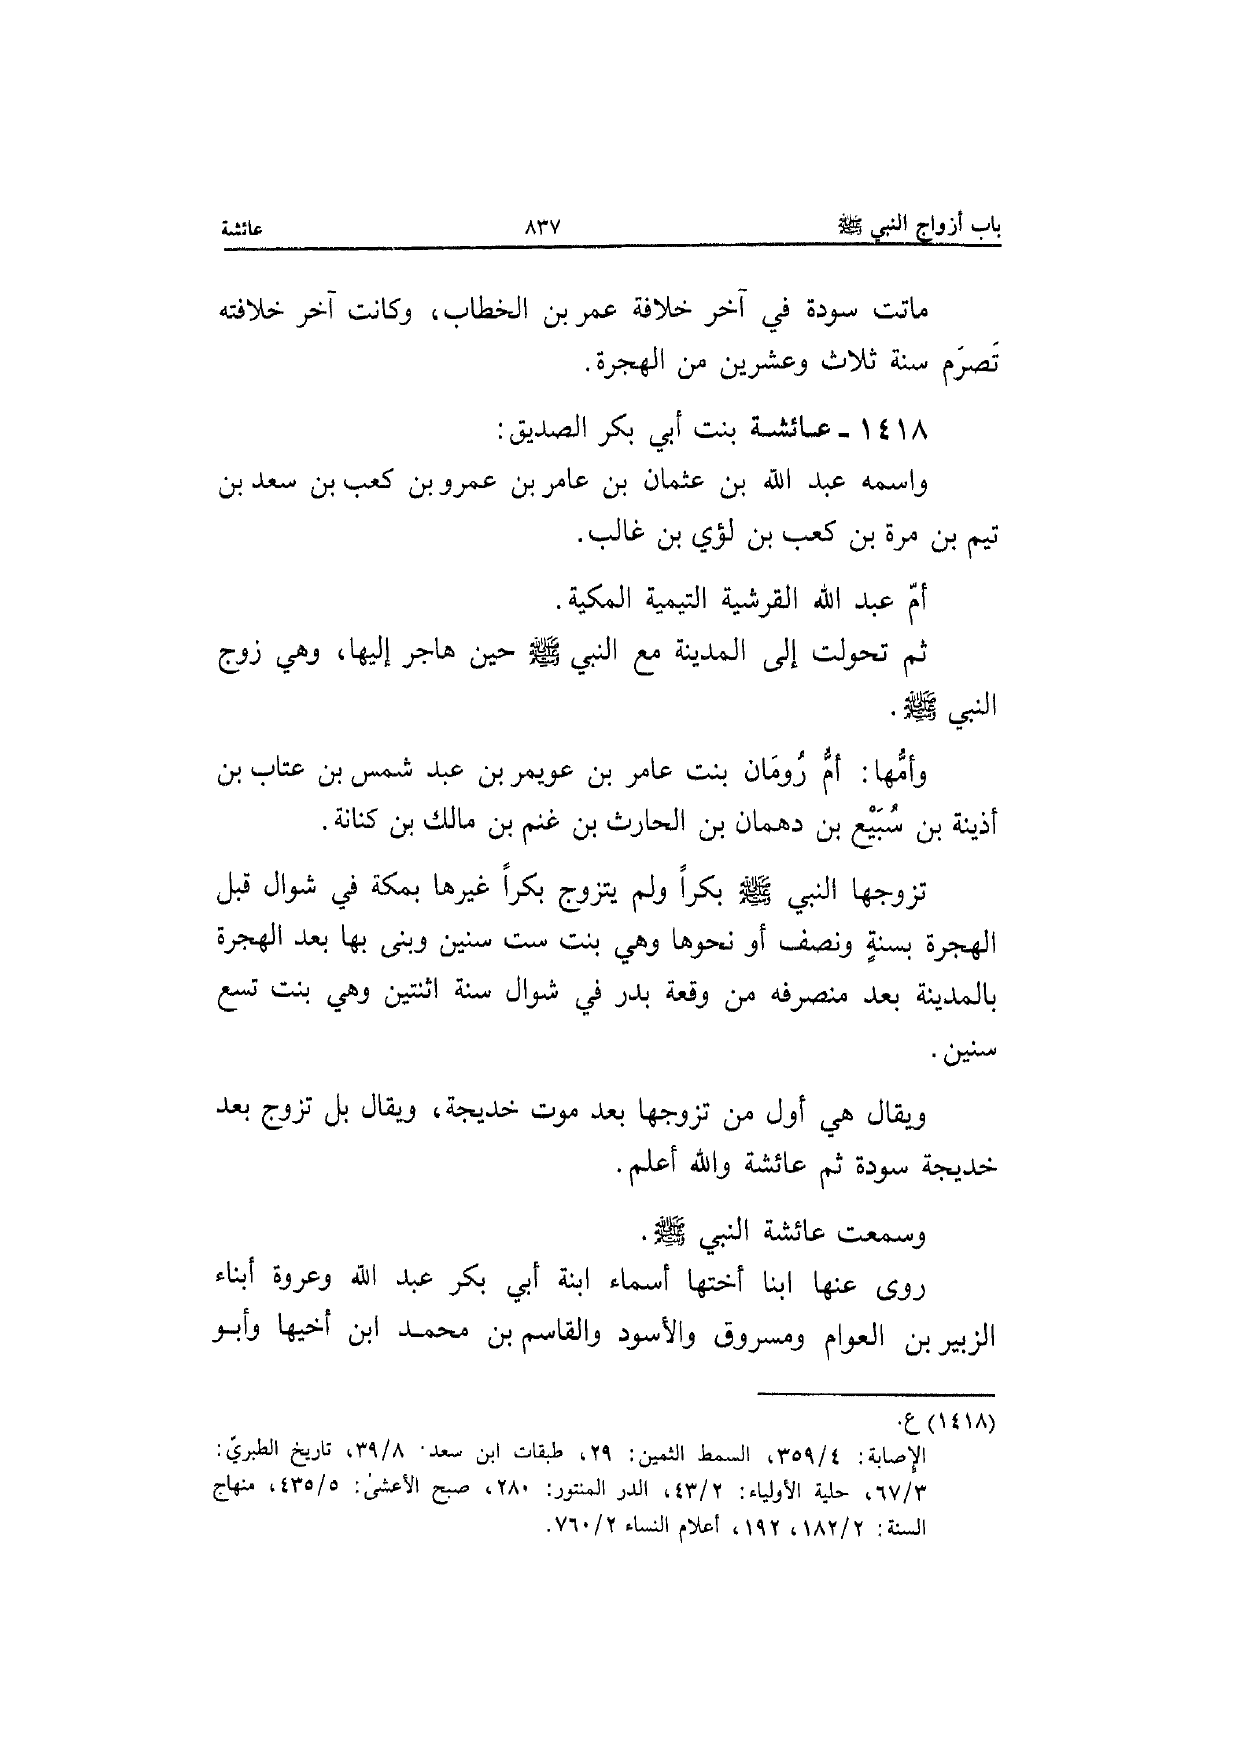 باب أزواج النبي ﷺ ٨٣٧ عائشة
ماتت سودة في آخر خلافة عمر بن الخطاب، وكانت آخر خلافته
تَصرَم سنة ثلاث وعشرين من الهجرة.
١٤١٨ - عائشة بنت أبي بكر الصديق:
واسمه عبد الله بن عثمان بن عامر بن عمرو بن كعب بن سعد بن
تيم بن مرة بن كعب بن لؤي بن غالب.
أمّ عبد الله القرشية التيمية المكية.
ثم تحولت إلى المدينة مع النبي ﷺ حين هاجر إليها، وهي زوج
النبي ﷺ.
وأمُّها: أمُّ رُومَان بنت عامر بن عويمر بن عبد شمس بن عتاب بن
أذينة بن سُبَيْع بن دهمان بن الحارث بن غنم بن مالك بن كنانة.
تزوجها النبي ﷺ بكراً ولم يتزوج بكراً غيرها بمكة في شوال قبل
الهجرة بسنةٍ ونصف أو نحوها وهي بنت ست سنين وبنى بها بعد الهجرة
بالمدينة بعد منصرفه من وقعة بدر في شوال سنة اثنتين وهي بنت تسع
سنين.
ويقال هي أول من تزوجها بعد موت خديجة، ويقال بل تزوج بعد
خديجة سودة ثم عائشة والله أعلم.
وسمعت عائشة النبي ﷺ.
روى عنها ابنا أختها أسماء ابنة أبي بكر عبد الله وعروة أبناء
الزبير بن العوام ومسروق والأسود والقاسم بن محمد ابن أخيها وأبو
(١٤١٨) ع.
الإصابة: ٣٥٩/٤، السمط الثمين: ٢٩، طبقات ابن سعد٠ ٣٩/٨، تاريخ الطبريّ:
٦٧/٣، حلية الأولياء: ٤٣/٢، الدر المنثور: ٢٨٠، صبح الأعشىٰ: ٤٣٥/٥، منهاج
السنة: ١٨٢/٢، ١٩٢، أعلام النساء ٧٦٠/٢.